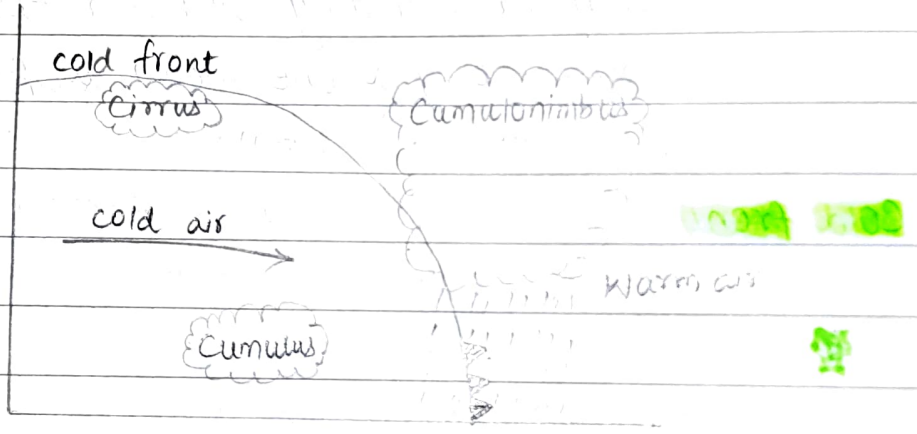 cold front
Cirrus
Cumulonimbus
cold air
Warm air
Cumulus